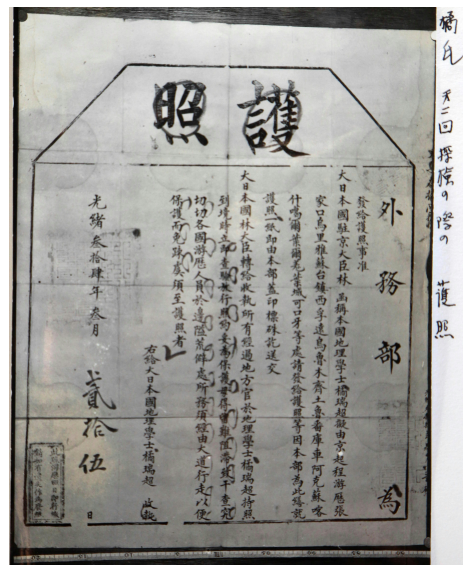 護照
外務部為
發給護照事准
大日本國駐京大臣林 函稱本國地理學士橘瑞超擬由京起程游歷張
家口烏里雅蘇台鎮西孚遠烏魯木齊土魯番庫車阿克蘇喀
什噶爾葉爾羌葉城可口牙等處請發給護照等因本部為此繕就
護照一紙卽由本部蓋印標硃訖送交
大日本國林大臣轉給收執所有經過地方官於地理學士橘瑞超持照
到境時立卽查驗放行照約妥為保護
切切各國游歷人員於邊陲荒僻處所務須經由大道行走以便
保護而免疎虞須至護照者
右給大日本國地理學士橘瑞超 收執
光緒叄拾肆年 叄月 貳拾伍 日
橘氏 第二回 探險の際の 護照